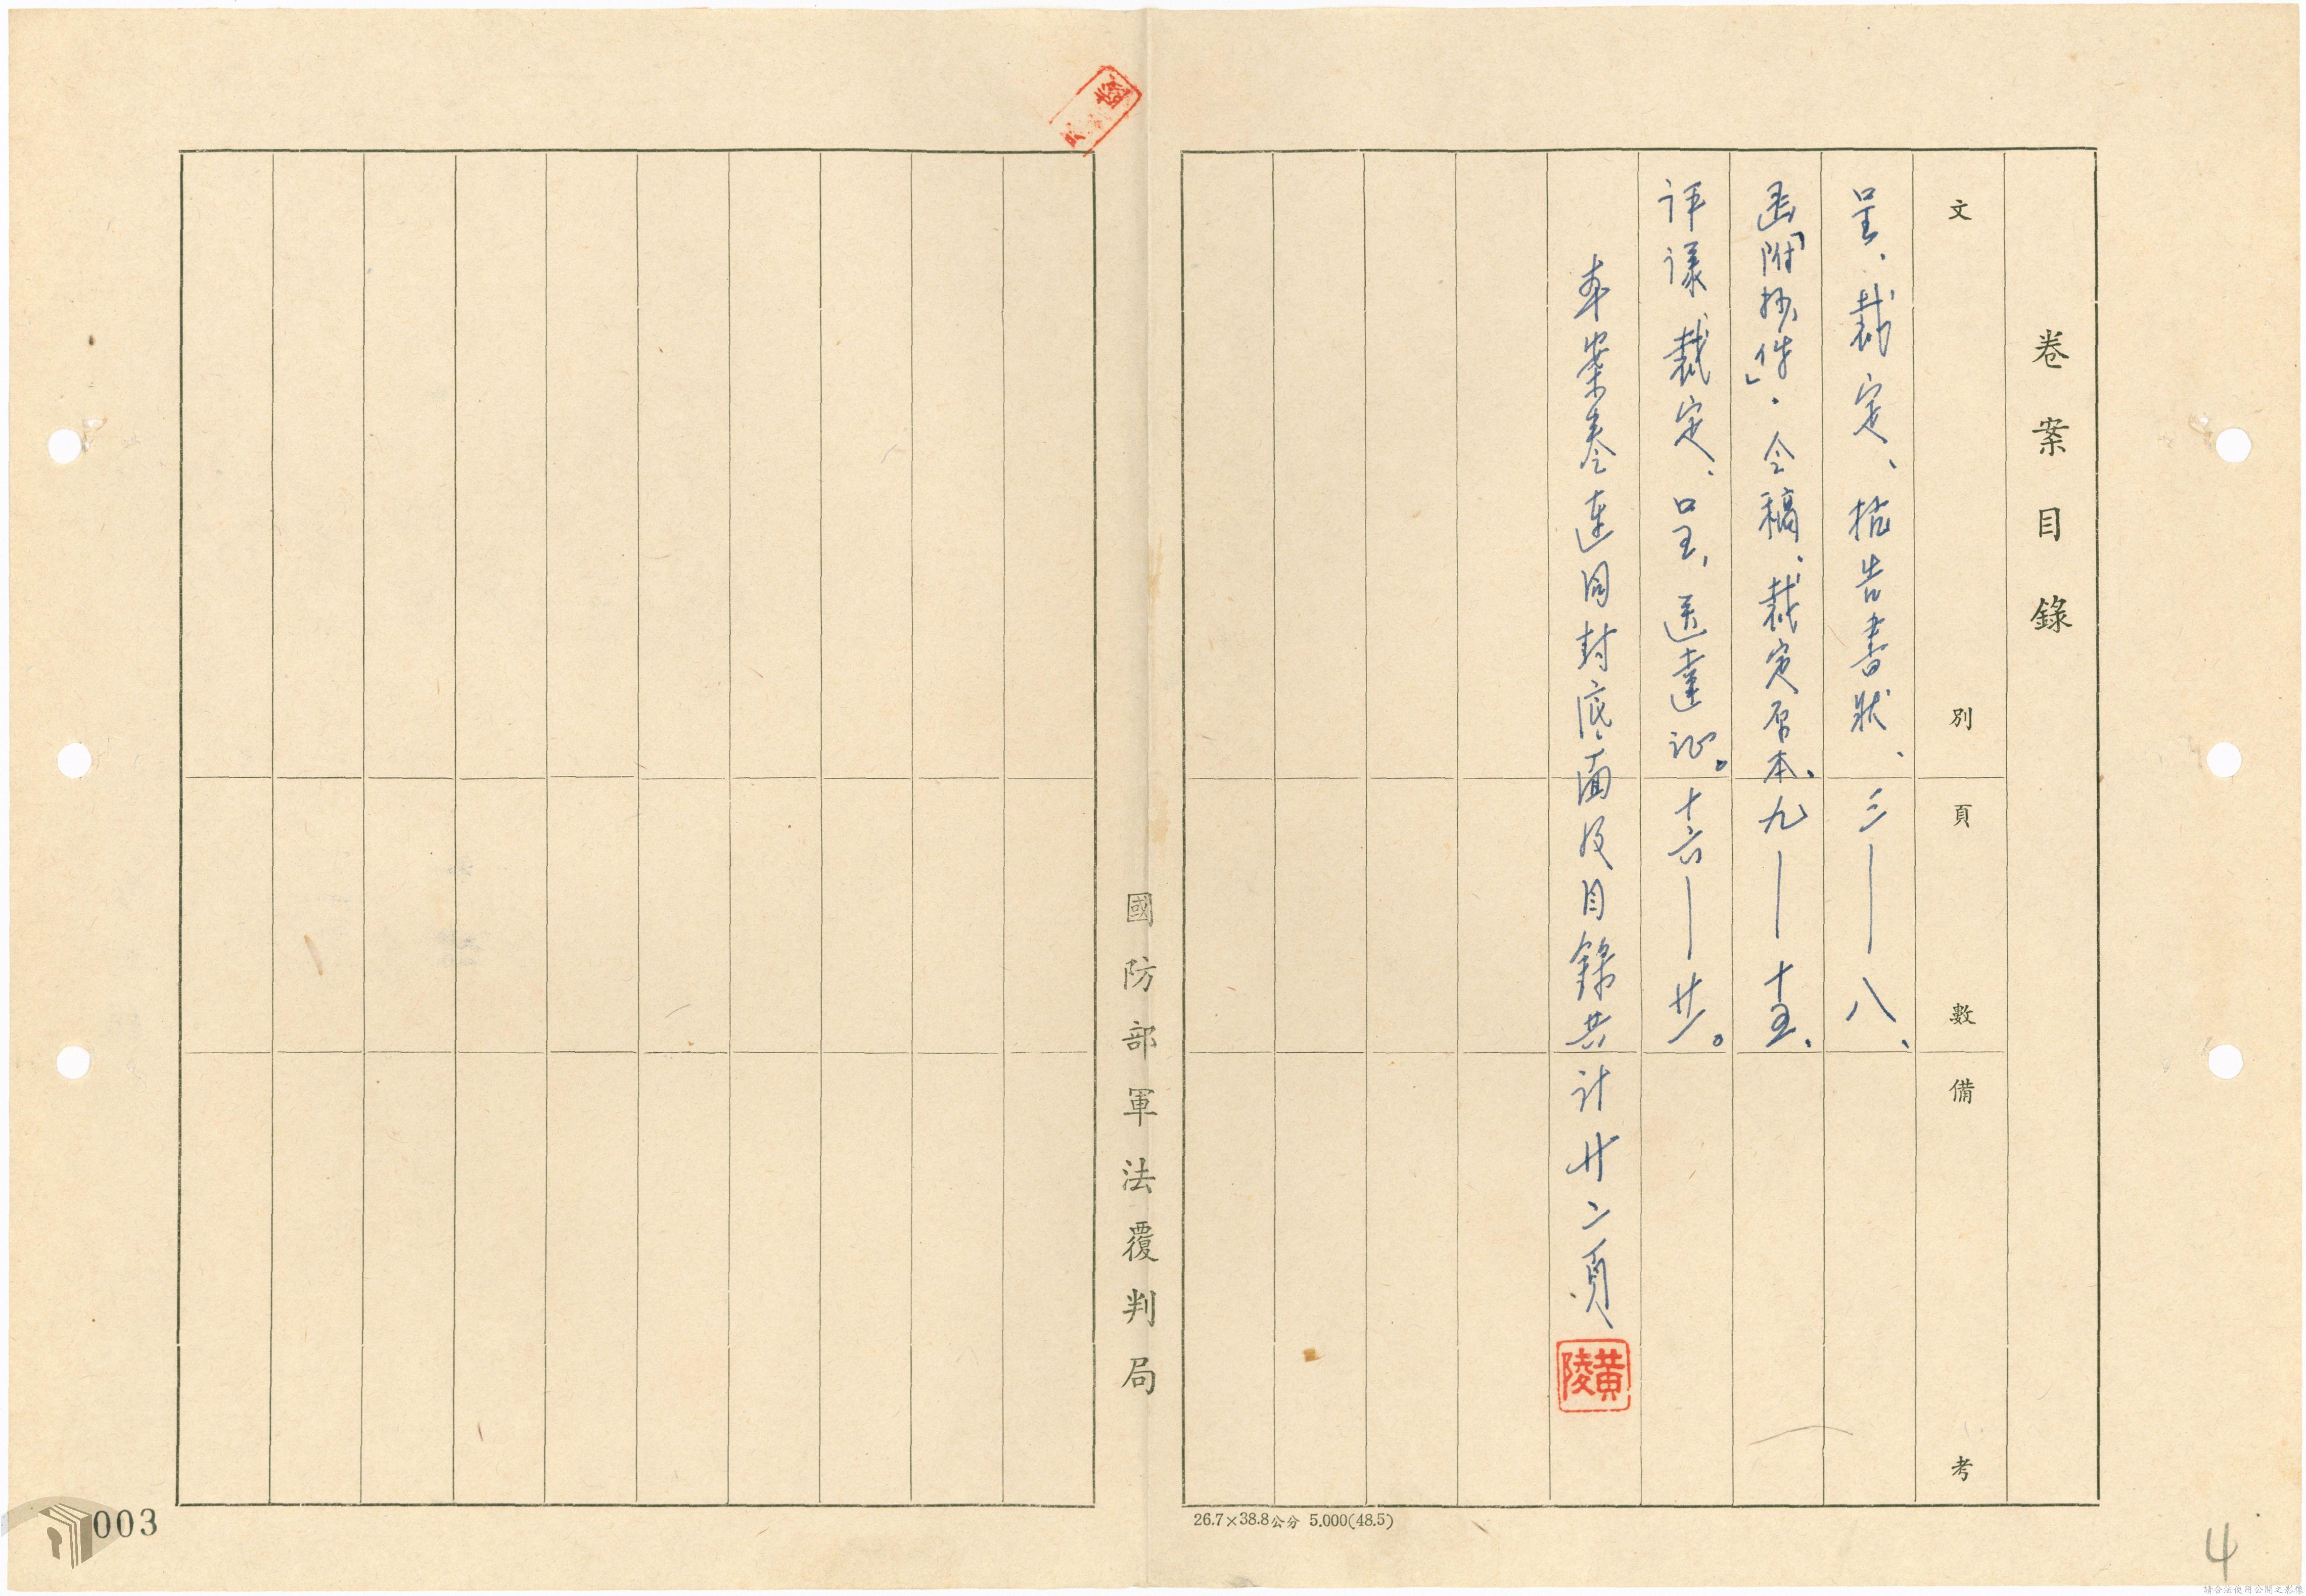 卷案目錄
文別 頁數 備考
呈、裁定、抗告書狀、三——八、
函「附抄件」.令稿、裁定原本、九——十五、
評議、裁定、呈、送達証。十六——廿一。
本案卷連同封底、面及目錄共計廿二頁
黃陵
國防部軍法覆判局
26.7×38.8公分 5.000(48.5)
003
4
請合法使用公開之影像